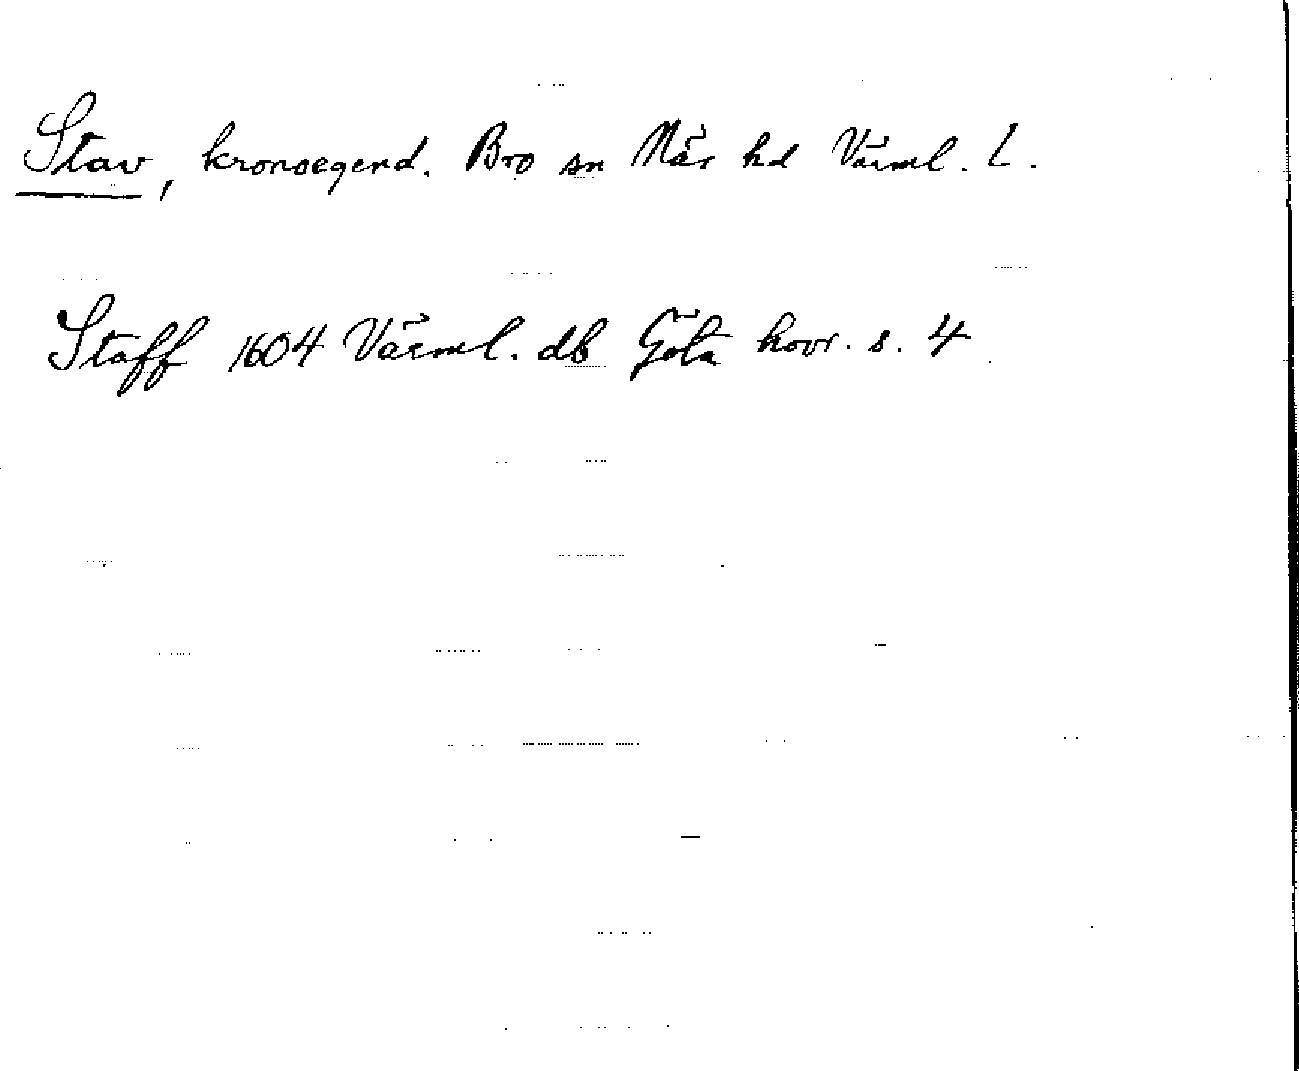 Stav, kronoegend. Bro sn Näs hd Värml. L.
Staff 1604 Värml. db Göta hovr. s. 4